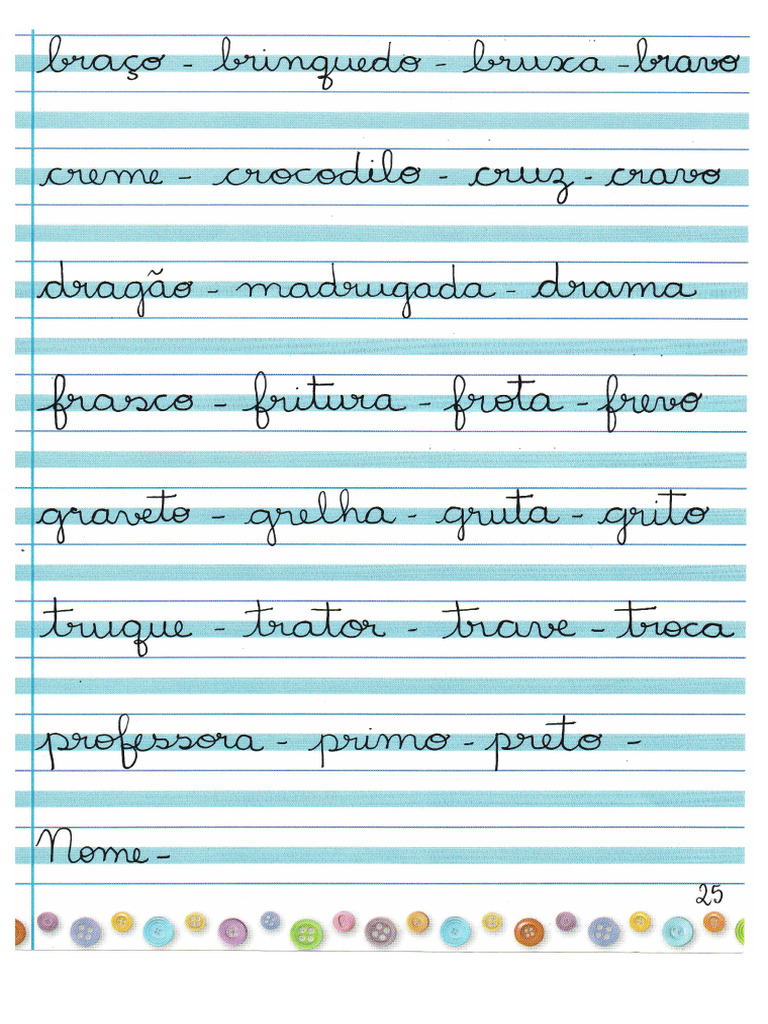 braço - brinquedo - bruxa - bravo
creme - crocodilo - cruz - cravo
dragão - madrugada - drama
frasco - fritura - frota - frevo
graveto - grelha - gruta - grito
truque - trator - trave - troca
professora - primo - preto -
Nome -
25